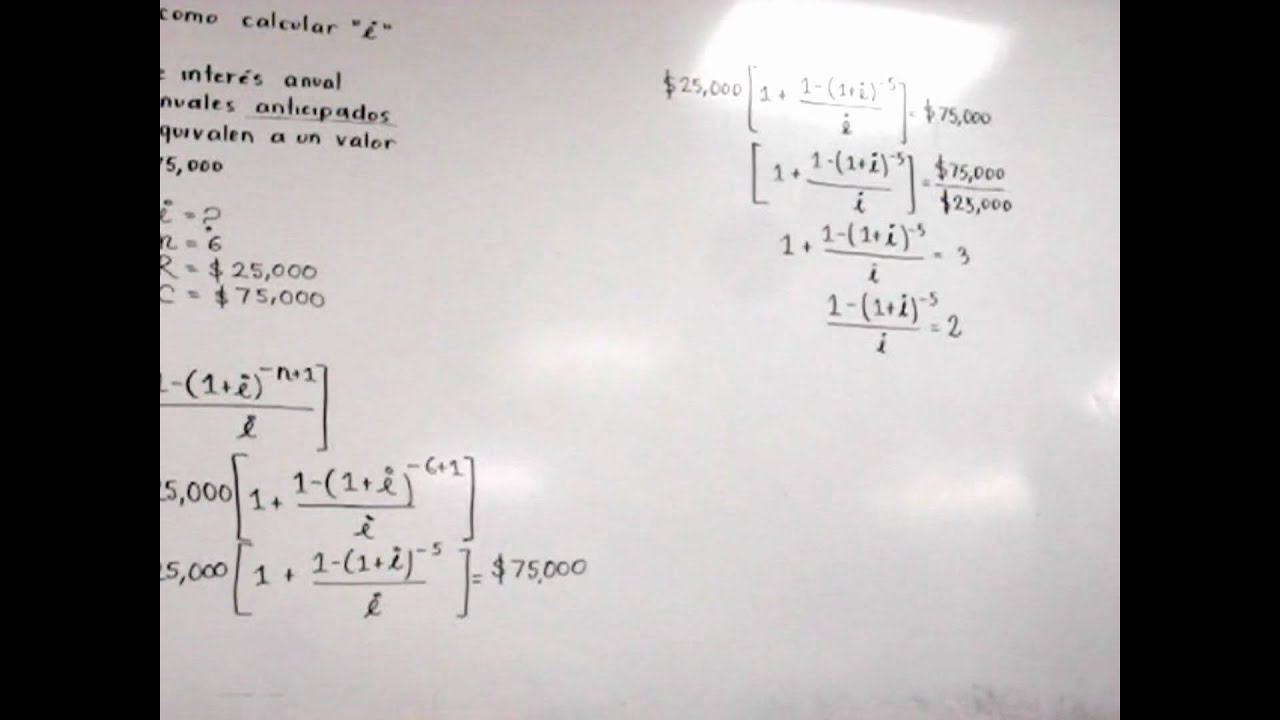 como calcular "i"
interés anual
anticipados
a un valor
75,000
i = ?
n = 6
R = $25,000
C = $75,000
1-(1+i)^-n+1 / i ]
25,000 [ 1 + 1-(1+i)^-6+1 / i ]
25,000 [ 1 + 1-(1+i)^-5 / i ] = $75,000
$25,000 [ 1 + 1-(1+i)^-5 / i ] = $75,000
[ 1 + 1-(1+i)^-5 / i ] = $75,000 / $25,000
1 + 1-(1+i)^-5 / i = 3
1-(1+i)^-5 / i = 2